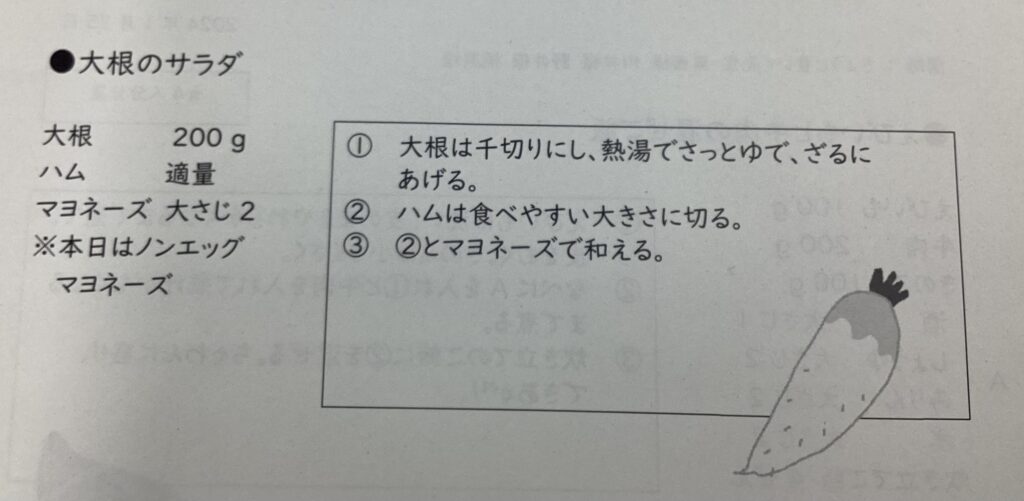 ●大根のサラダ
大根 200g
ハム 適量
マヨネーズ 大さじ2
※本日はノンエッグ
マヨネーズ
① 大根は千切りにし、熱湯でさっとゆで、ざるに
あげる。
② ハムは食べやすい大きさに切る。
③ ②とマヨネーズで和える。